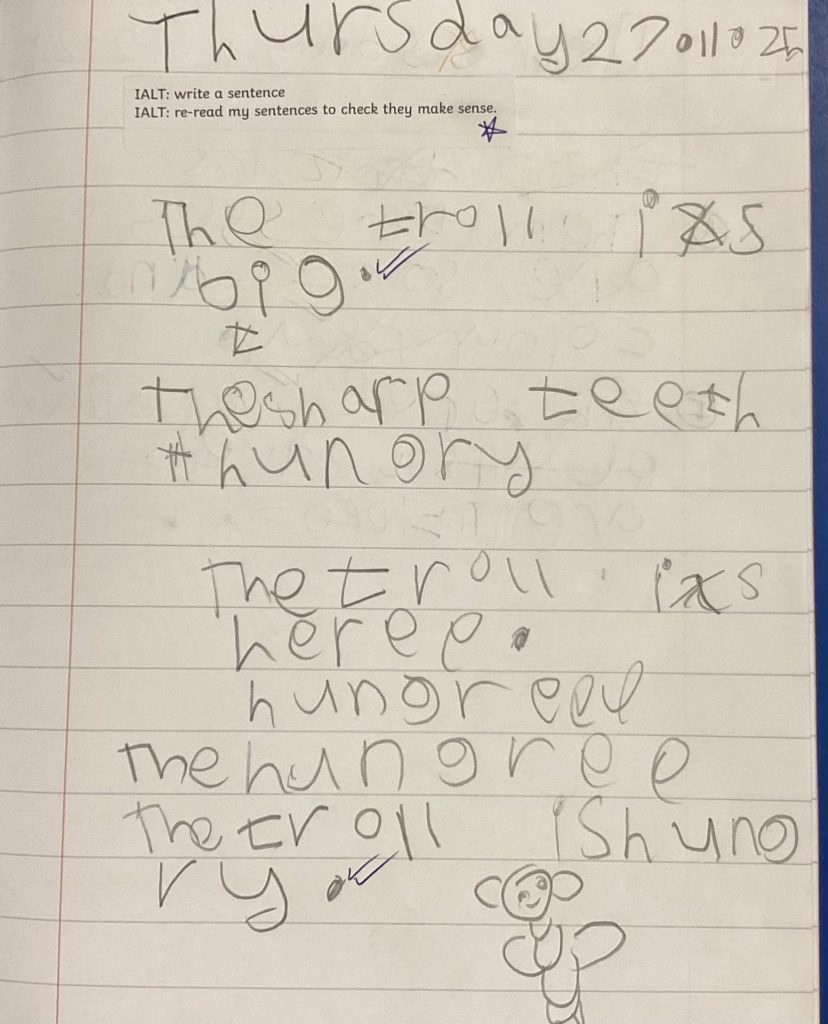 Thursday 27.11.25
IALT: write a sentence
IALT: re-read my sentences to check they make sense.
The troll is
big.
t
thesharp teeth
hungry
The troll is
heree.
hungreee
The hungree
The troll is hung
ry.